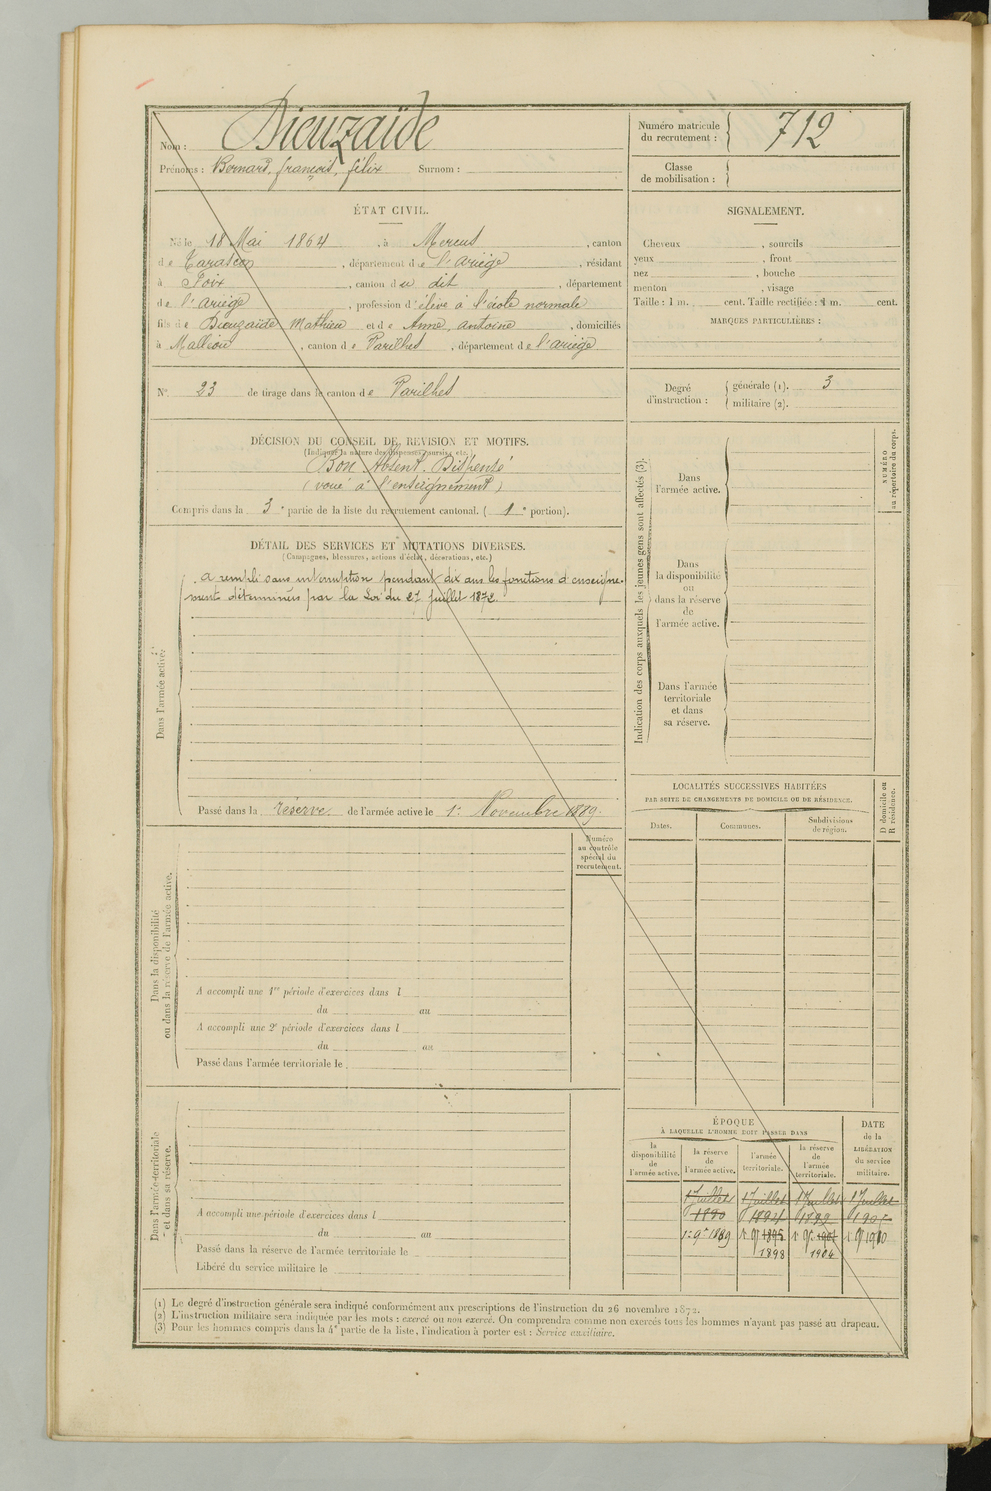 Nom : Dieuzaïde
Prénoms : Bernard, françois, félix Surnom :
Numéro matricule du recrutement : 712
Classe de mobilisation :
ÉTAT CIVIL.
Né le 18 Mai 1864, à Mercus, canton
de Tarascon, département de l'ariège, résidant
à Foix, canton du dit, département
de l'ariège, profession d'élève à l'école normale
fils de Dieuzaïde Mathieu et de Anne antoine, domiciliés
à Malléon, canton de Varilhes, département de l'ariège
N° 23 de tirage dans le canton de Varilhes
SIGNALEMENT.
Cheveux , sourcils
yeux , front
nez , bouche
menton , visage
Taille : 1 m. cent. Taille rectifiée : 1 m. cent.
MARQUES PARTICULIÈRES :
Degré d'instruction :
générale (1). 3
militaire (2).
DÉCISION DU CONSEIL DE REVISION ET MOTIFS.
(Indiquer la nature des dispenses, sursis, etc.)
Bon. Absent. Dispensé
(voué à l'enseignement)
Compris dans la 3e partie de la liste du recrutement cantonal. (1e portion).
DÉTAIL DES SERVICES ET MUTATIONS DIVERSES.
(Campagnes, blessures, actions d'éclat, décorations, etc.)
Dans l'armée active.
a rempli sans interruption pendant dix ans les fonctions d'enseigne-
ment déterminées par la Loi du 27 Juillet 1872.
Passé dans la réserve de l'armée active le 1er Novembre 1889.
Indication des corps auxquels les jeunes gens sont affectés (3).
NUMÉRO
au répertoire du corps.
Dans
l'armée active.
Dans
la disponibilité
ou
dans la réserve
de
l'armée active.
Dans l'armée
territoriale
et dans
sa réserve.
LOCALITÉS SUCCESSIVES HABITÉES
PAR SUITE DE CHANGEMENTS DE DOMICILE OU DE RÉSIDENCE.
D domicile ou
R résidence.
Dates. Communes. Subdivisions
de région.
Dans la disponibilité
ou dans la réserve de l'armée active.
Numéro
au contrôle
spécial du
recrutement.
A accompli une 1re période d'exercices dans l
du au
A accompli une 2e période d'exercices dans l
du au
Passé dans l'armée territoriale le
Dans l'armée territoriale
et dans sa réserve.
A accompli une période d'exercices dans l
du au
Passé dans la réserve de l'armée territoriale le
Libéré du service militaire le
ÉPOQUE
À LAQUELLE L'HOMME DOIT PASSER DANS
la
disponibilité
de
l'armée active.
la réserve
de
l'armée active.
l'armée
territoriale.
la réserve
de
l'armée
territoriale.
DATE
de la
LIBÉRATION
du service
militaire.
1 Juillet 1 Juillet 1 Juillet 1 Juillet
1890 1894 1899 1905
1er 9bre 1889 1er 9bre 1895 1er 9bre 1901 1er 9bre 1910
1898 1904
(1) Le degré d'instruction générale sera indiqué conformément aux prescriptions de l'instruction du 26 novembre 1872.
(2) L'instruction militaire sera indiquée par les mots : exercé ou non exercé. On comprendra comme non exercés tous les hommes n'ayant pas passé au drapeau.
(3) Pour les hommes compris dans la 4e partie de la liste, l'indication à porter est : Service auxiliaire.